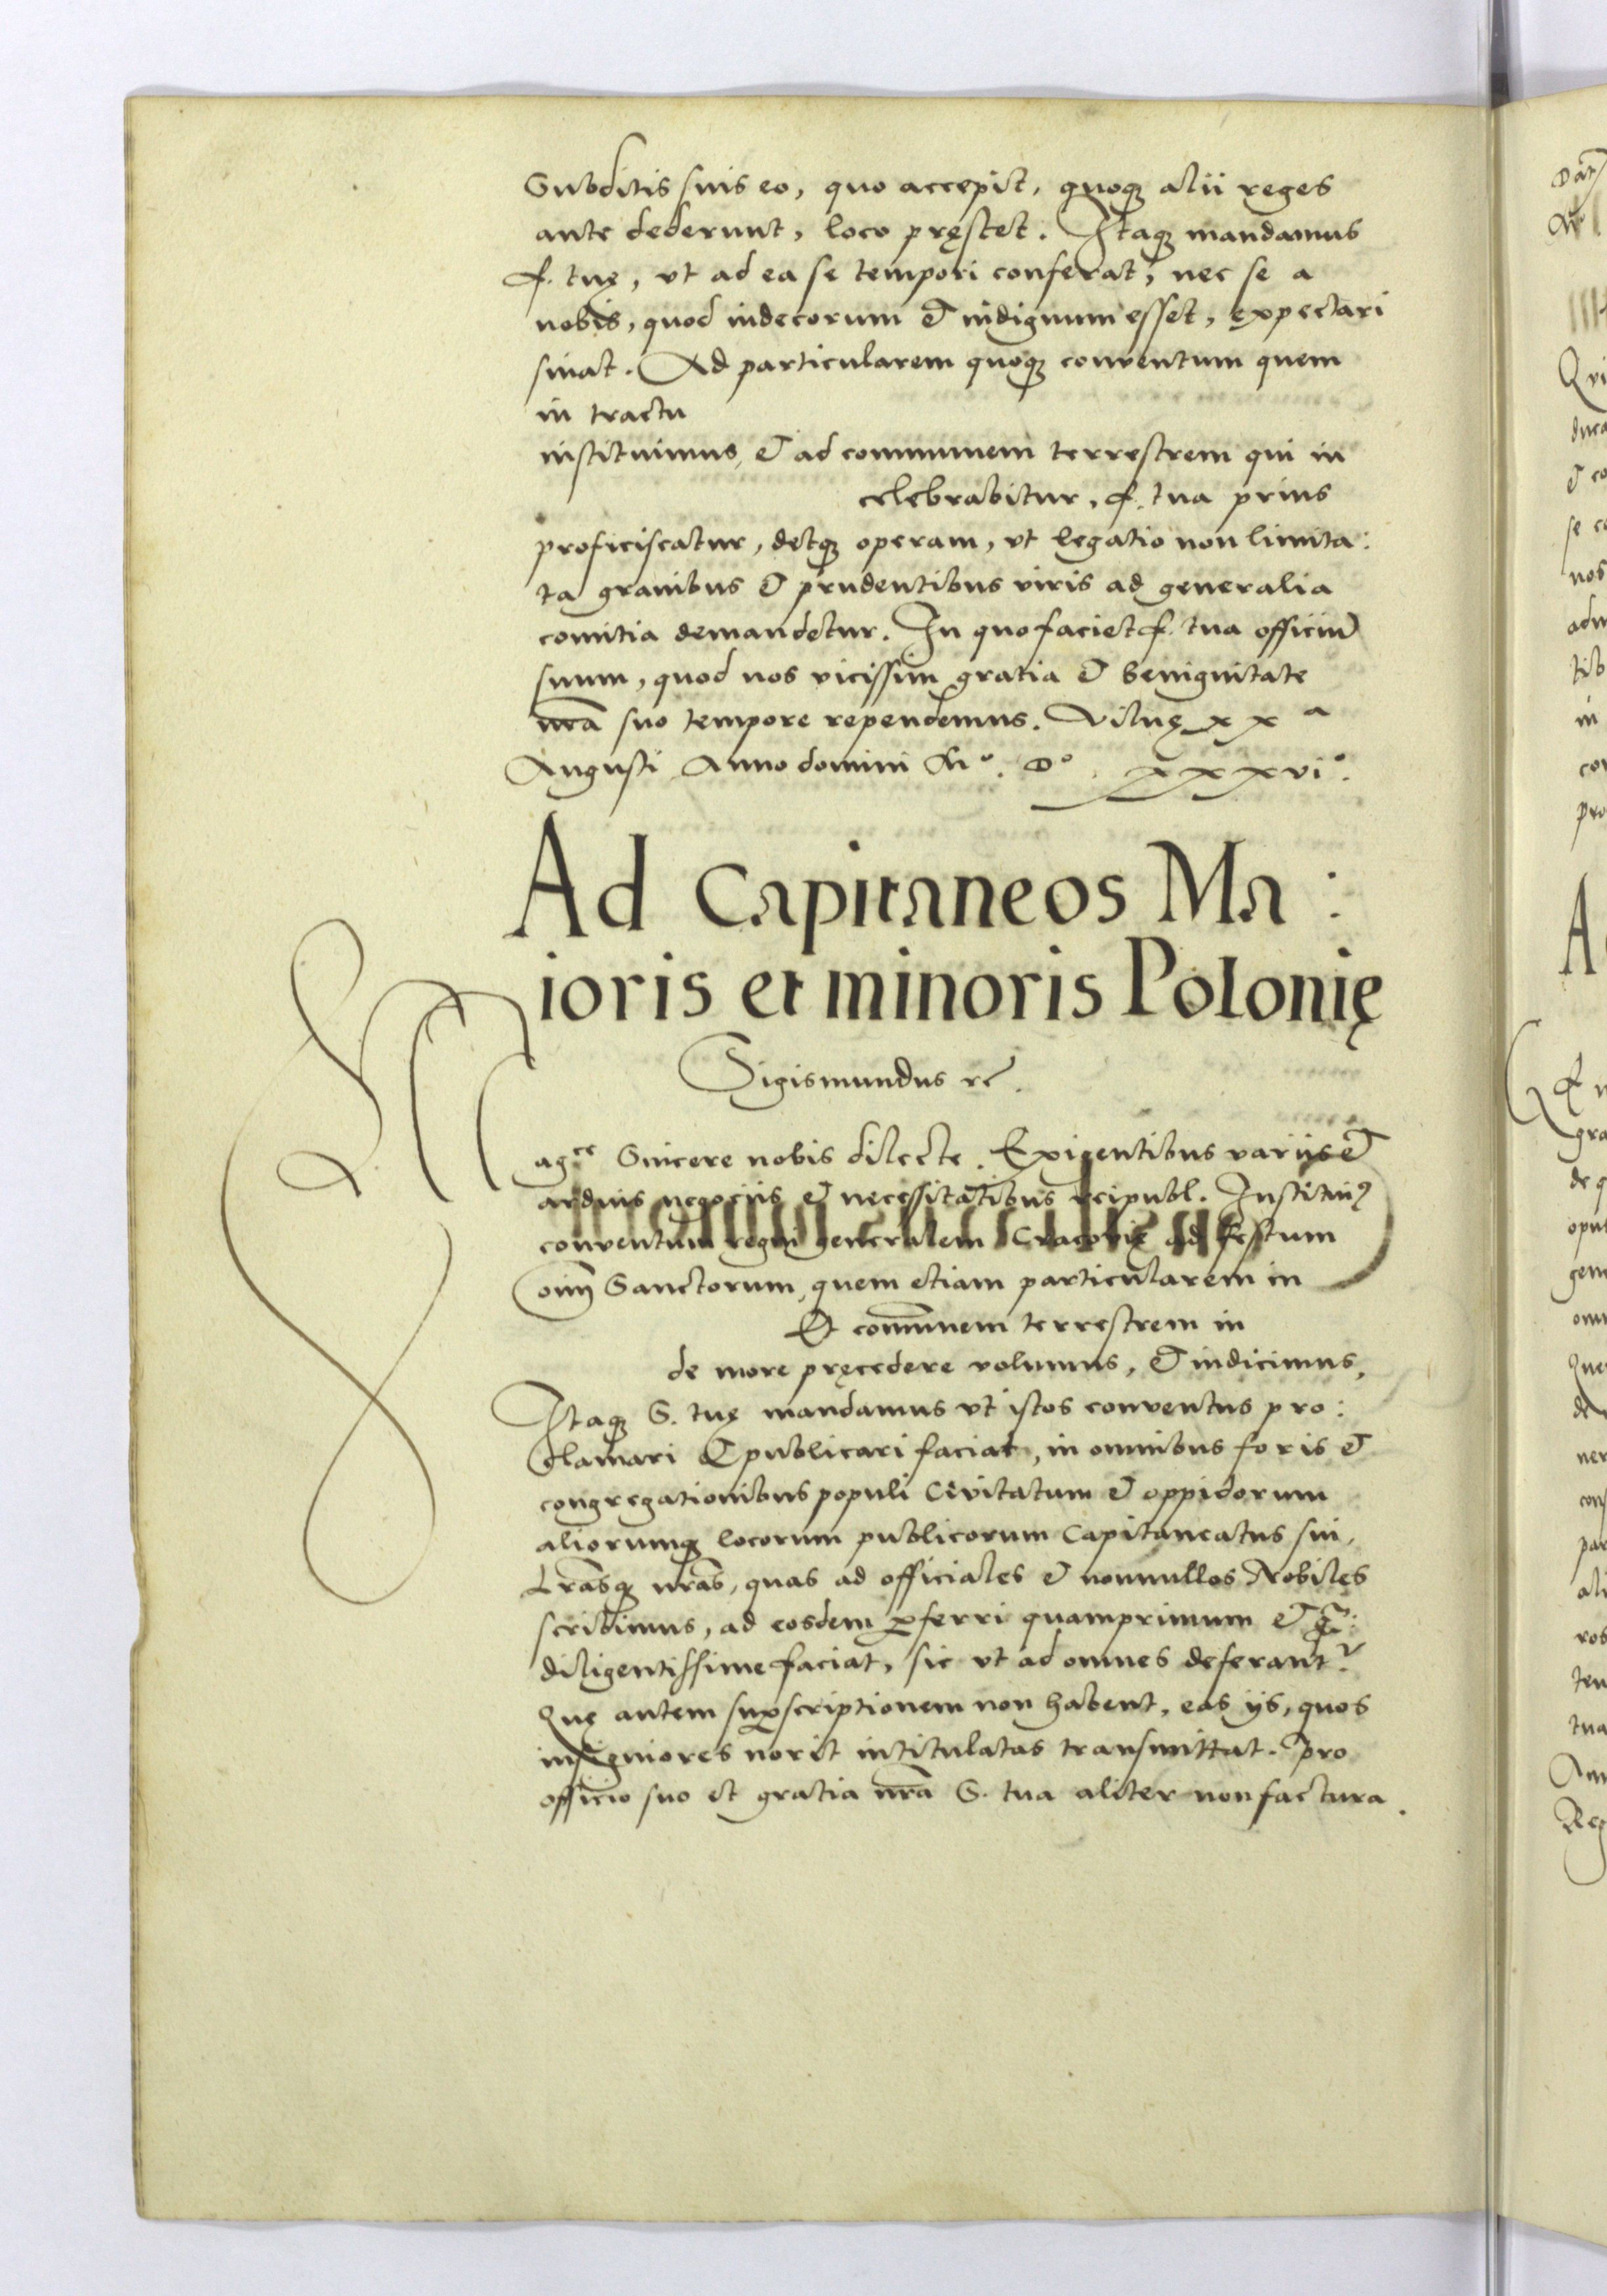 Subditis suis eo, quo accepit, quoqȝ alii reges
ante dederunt, loco pręstet. Itaqȝ mandamus
f. tuę, vt ad ea se tempori conferat, nec se a
nobis, quod indecorum & indignum esset, expectari
sinat. Ad particularem quoqȝ conventum quem
in tractu
instituimus, & ad communem terrestrem qui in
celebrabitur, f. tua prius
proficiscatur, detqȝ operam, vt legatio non limita:
ta gravibus & prudentibus viris ad generalia
comitia demandetur. In quo faciet f. tua officiū
suum, quod nos vicissim gratia & benignitate
nr̄a suo tempore rependemus. Vilnę xx a
Augusti Anno domini Mº. Dº. xxxviº.
Ad Capitaneos Ma:
ioris et minoris Polonię
Sigismundus rc̄.
Magce Sincere nobis dilecte. Exigentibus variis &
arduis negociis & necessitatibus reipubl. Instituiꝰ
conventum regni generalem Cracovię ad festum
oīm Sanctorum, quem etiam particularem in
Et com̄unem terrestrem in
de more pręcedere volumus, & indicimus,
Itaqȝ S. tuę mandamus vt istos conventus pro:
clamari & publicari faciat, in omnibus foris &
congregationibus populi Civitatum & oppidorum
aliorumqȝ locorum publicorum Capitaneatus sui,
Lr̄asqȝ nr̄as, quas ad officiales & nonnullos Nobiles
scribimus, ad eosdem ꝑferri quamprimum &
diligentissime faciat, sic vt ad omnes deferantr.
Quę autem suꝑscriptionem non habent, eas iis, quos
insigniores norit intitulatas transmittat. Pro
officio suo et gratia nr̄a S. tua aliter non factura.